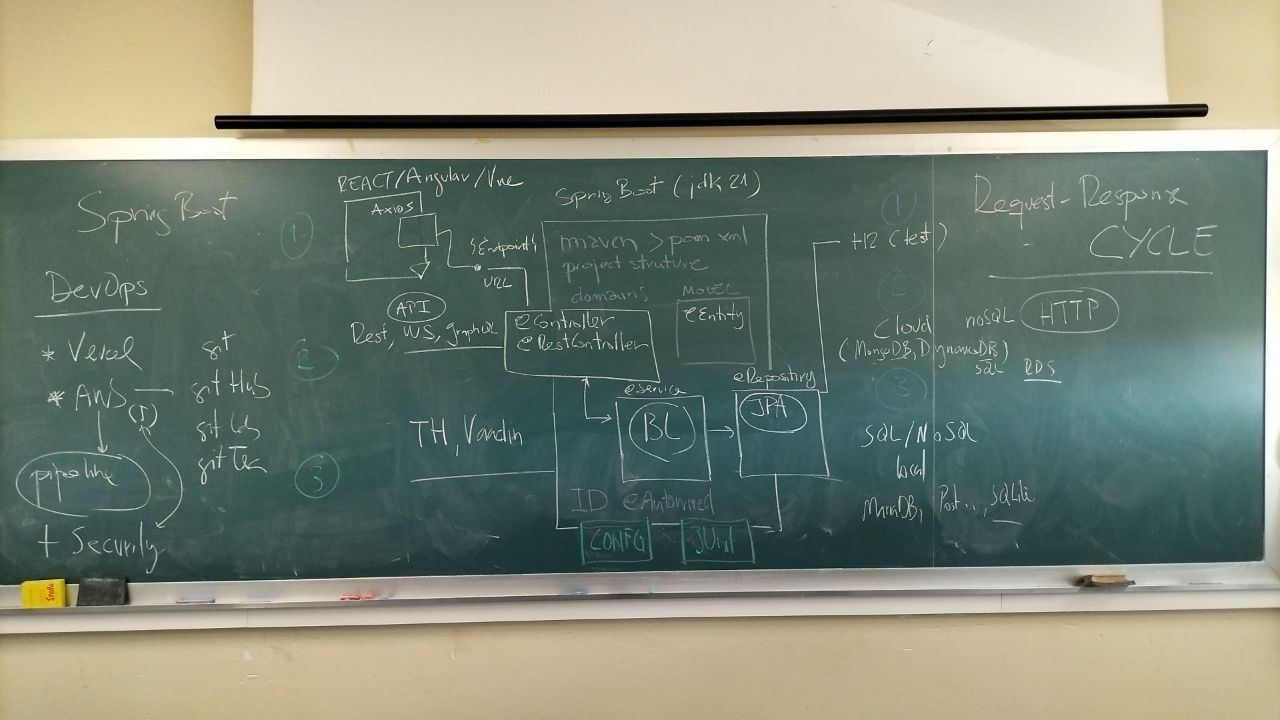 Spring Boot
DevOps
* Vercel
* AWS
(I)
pipeline
+ Security
git
git Hub
git Lab
git Tea
1
2
3
REACT/Angular/Vue
Axios
"Endpoint"
URL
API
Rest, WS, graphQL
TH, Vaadin
Spring Boot (jdk 21)
maven > pom xml
project struture
domain;
MODEL
@Entity
@Controller
@RestController
@Service
BL
@Repository
JPA
ID @Autowired
CONFG
JUnit
1
+H2 (test)
2
Cloud noSQL
(MongoDB, DynamoDB)
SQL RDS
3
SQL/NoSQL
local
MariaDB, Post..., SQLite
Request-Response
CYCLE
HTTP